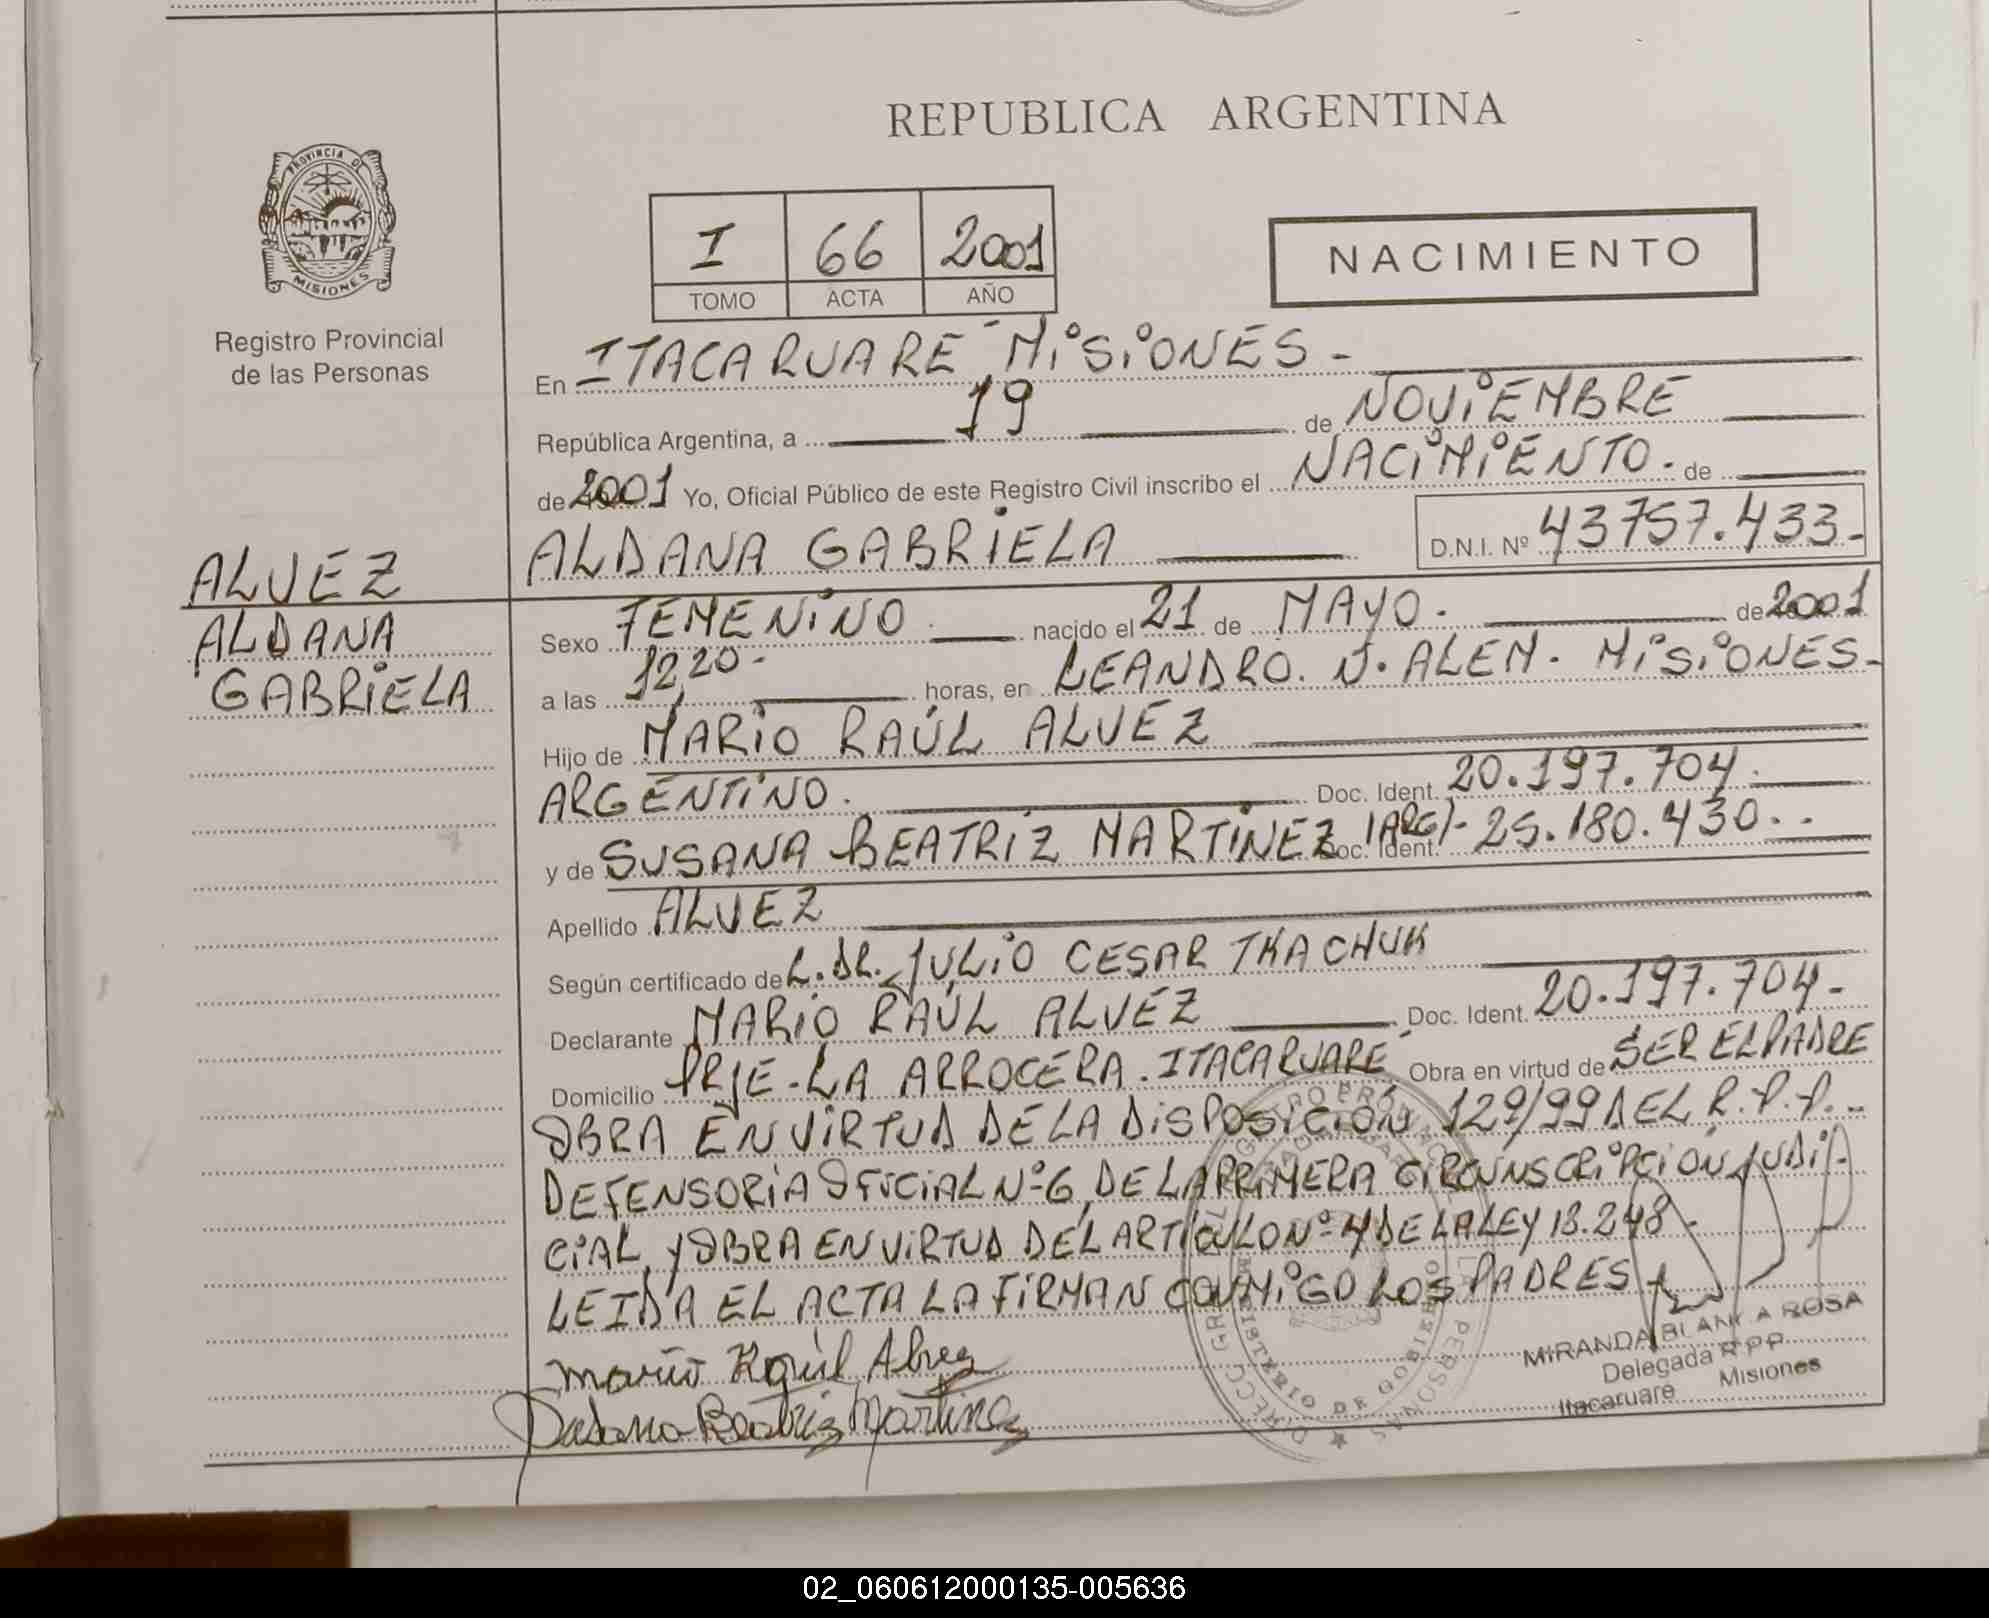 REPUBLICA ARGENTINA
PROVINCIA DE
MISIONES
Registro Provincial
de las Personas
I 66 2001
TOMO ACTA AÑO
NACIMIENTO
En ITACARUARÉ MiSiONES-
República Argentina, a 19 de NOViEMBRE
de 2001 Yo, Oficial Público de este Registro Civil inscribo el NACiMiENTO. de
ALDANA GABRiELA D.N.I. Nº 43757.433-
ALVEZ
ALDANA
GABRiELA
Sexo FEMENiNO. nacido el 21 de MAYO. de 2001
a las 12,20- horas, en LEANDRO. N. ALEM. MiSiONES-
Hijo de MARiO RAÚL ALVEZ
ARGENTiNO. Doc. Ident. 20.197.704.
y de SUSANA BEATRiZ MARTiNEZ Doc. Ident. (ARG)- 25.180.430..
Apellido ALVEZ
Según certificado de L. DR. JULiO CESAR TKACHUK
Declarante MARiO RAÚL ALVEZ Doc. Ident. 20.197.704-
Domicilio PRJE-LA ARROCERA. ITACARUARÉ Obra en virtud de SER EL PADRE
OBRA EN ViRTUD DE LA DiSPOSiCiÓN 129/99 DEL R.P.P.-
DEFENSORiA OFiCiAL Nº6, DE LA PRiMERA CiRCUNSCRiPCiÓN JUDi-
CiAL, Y OBRA EN ViRTUD DEL ARTÍCULO Nº 4 DE LA LEY 18.248-
LEIDA EL ACTA LA FiRMAN CONMiGO LOS PADRES
Mario Raúl Alvez
Susana Beatriz Martinez
MIRANDA BLANCA ROSA
Delegada R P P
Itacaruaré Misiones
MINISTERIO DE GOBIERNO
02_060612000135-005636